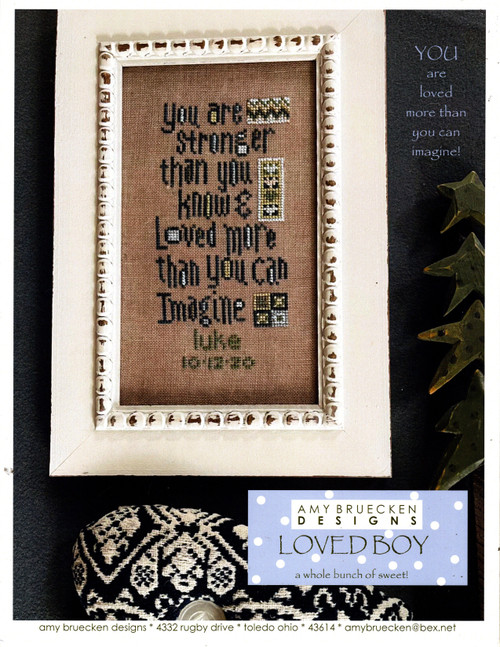 YOU
are
loved
more than
you can
imagine!
you are
stronger
than you
know &
Loved more
than you can
Imagine
luke
10·12·20
AMY BRUECKEN
DESIGNS
LOVED BOY
a whole bunch of sweet!
amy bruecken designs * 4332 rugby drive * toledo ohio * 43614 * amybruecken@bex.net